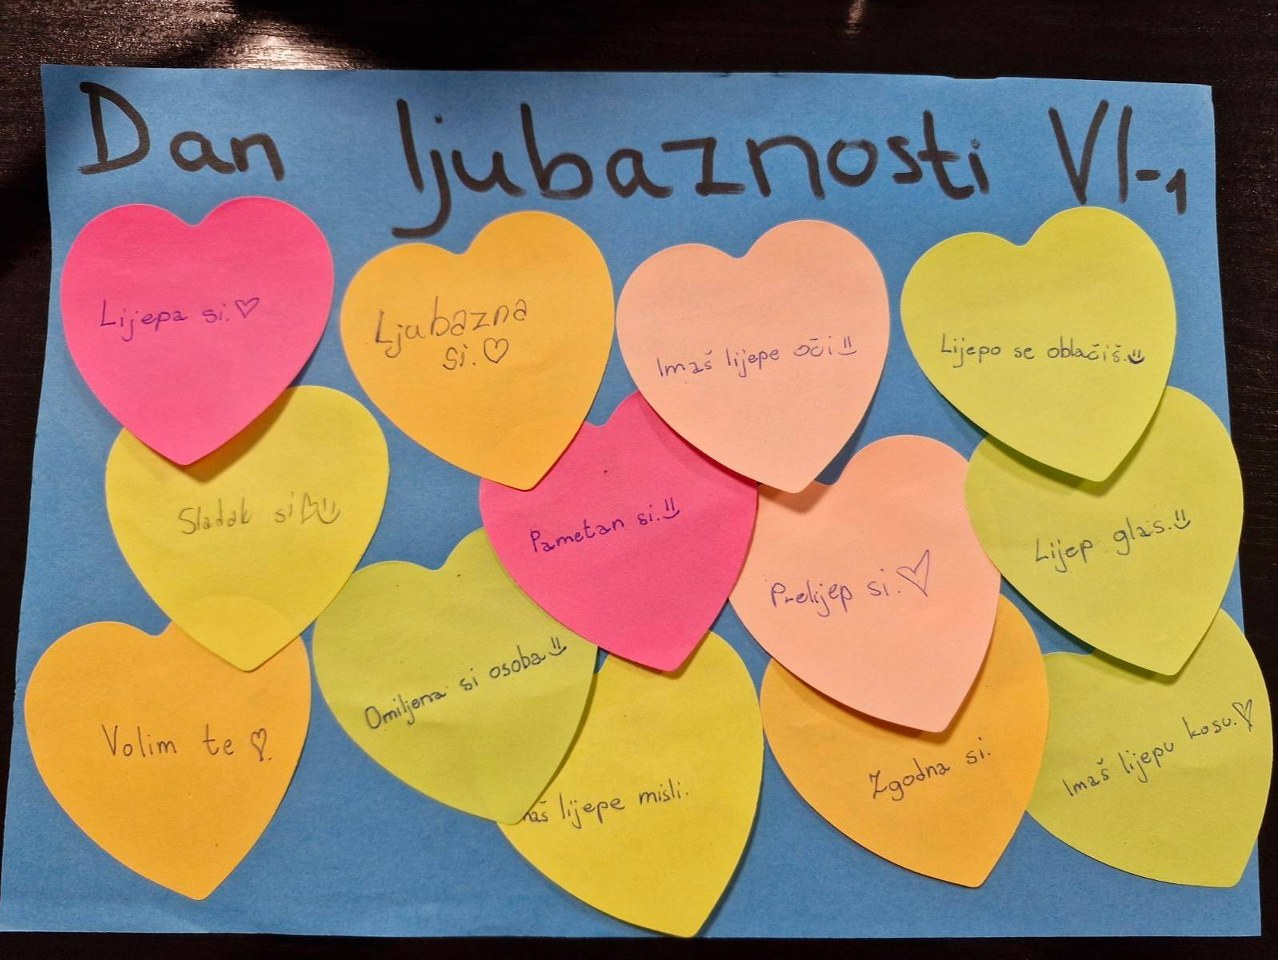 Dan ljubaznosti VI-1
Lijepa si.
Ljubazna
si.
Imaš lijepe oči
Lijepo se oblačiš.
Sladak si
Pametan si.
Prelijep si.
Lijep glas.
Volim te
Omiljena si osoba
lijepe misli.
Zgodna si.
Imaš lijepu kosu.